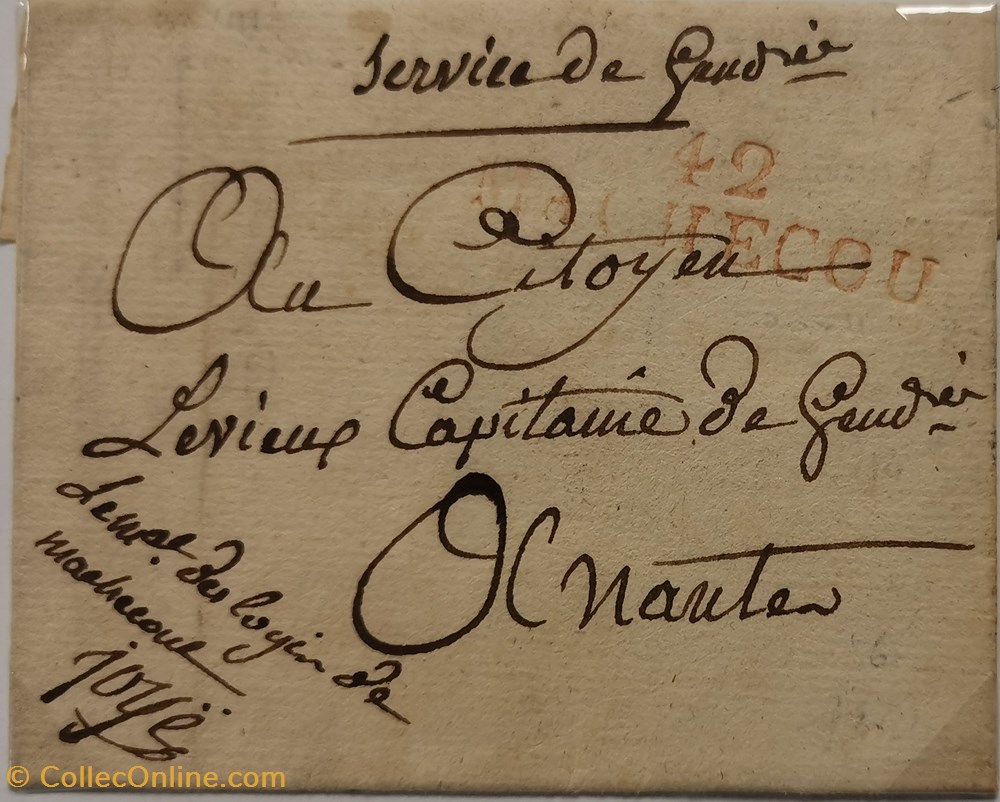 Service de Gend.rie
42
MACHECOU
Au Citoyen
Levieux Capitaine de Gend.rie
A Nantes
de
machecoul
© CollecOnline.com